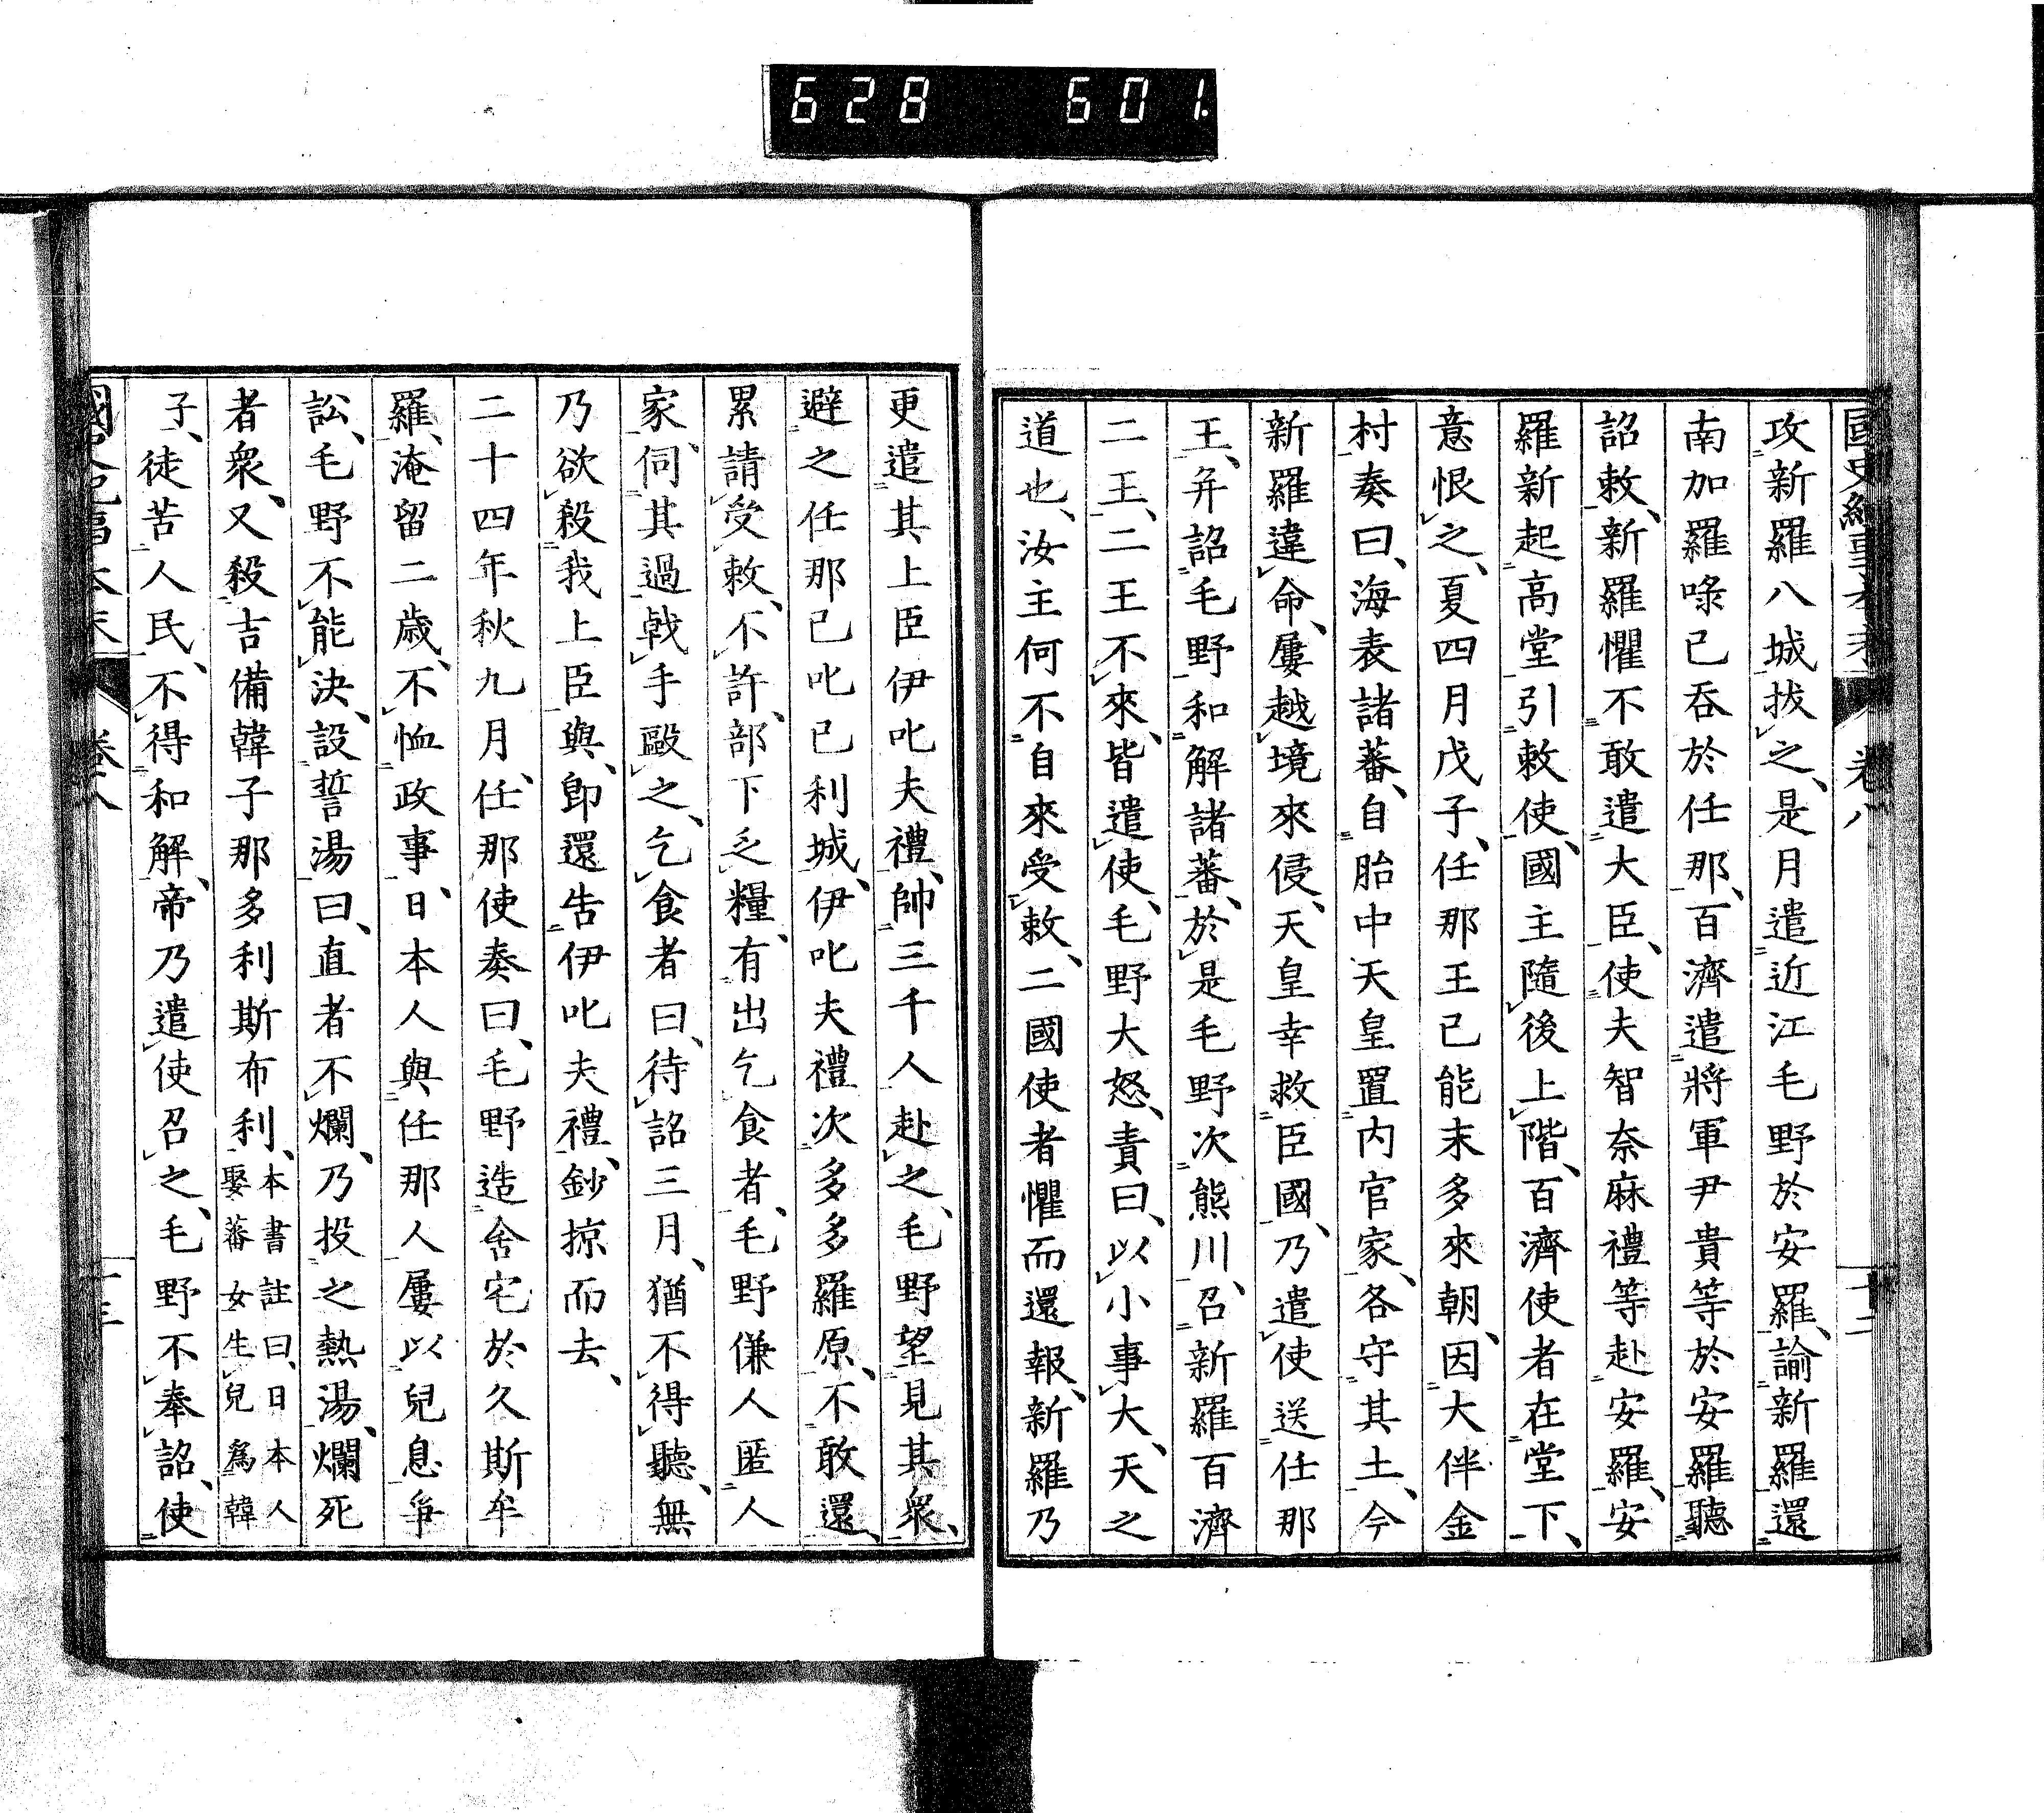 628 601
攻新羅八城拔之、是月遣近江毛野於安羅、諭新羅還
南加羅㖨己呑於任那、百濟遣將軍尹貴等於安羅聽
詔敕、新羅懼不敢遣大臣、使夫智奈麻禮等赴安羅、安
羅新起高堂引敕使、國主隨後上階、百濟使者在堂下、
意恨之、夏四月戊子、任那王己能末多來朝、因大伴金
村奏曰、海表諸蕃、自胎中天皇置内官家、各守其土、今
新羅違命、屢越境來侵、天皇幸救臣國、乃遣使送任那
王、幷詔毛野和解諸蕃、於是毛野次熊川、召新羅百濟
二王、二王不來、皆遣使、毛野大怒、責曰、以小事大、天之
道也、汝主何不自來受敕、二國使者懼而還報、新羅乃
更遣其上臣伊叱夫禮、帥三千人赴之、毛野望見其衆、
避之任那己叱己利城、伊叱夫禮次多多羅原、不敢還、
累請受敕、不許、部下乏糧、有出乞食者、毛野傔人匿人
家、伺其過戟手毆之、乞食者曰、待詔三月、猶不得聽、無
乃欲殺我上臣與、卽還告伊叱夫禮、鈔掠而去、
二十四年秋九月、任那使奏曰、毛野造舍宅於久斯牟
羅、淹留二歳、不恤政事、日本人與任那人屢以兒息爭
訟、毛野不能決、設誓湯曰、直者不爛、乃投之熱湯、爛死
者衆、又殺吉備韓子那多利斯布利、本書註曰、日本人娶蕃女生兒爲韓
子、徒苦人民、不得和解、帝乃遣使召之、毛野不奉詔、使